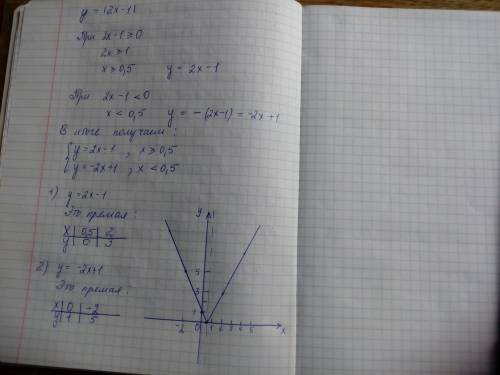 y = |2x-1|
При 2x-1 ≥ 0
2x ≥ 1
x ≥ 0,5   y = 2x-1
При 2x-1 < 0
x < 0,5   y = -(2x-1) = -2x+1
В итоге получаем:
{ y = 2x-1 , x ≥ 0,5
{ y = -2x+1 , x < 0,5
1) y = 2x-1
Это прямая:
x | 0,5 | 2
y | 0 | 3
2) y = -2x+1
Это прямая:
x | 0 | -2
y | 1 | 5
y
5
3
1
-2 0 1 2 3 4 5 x